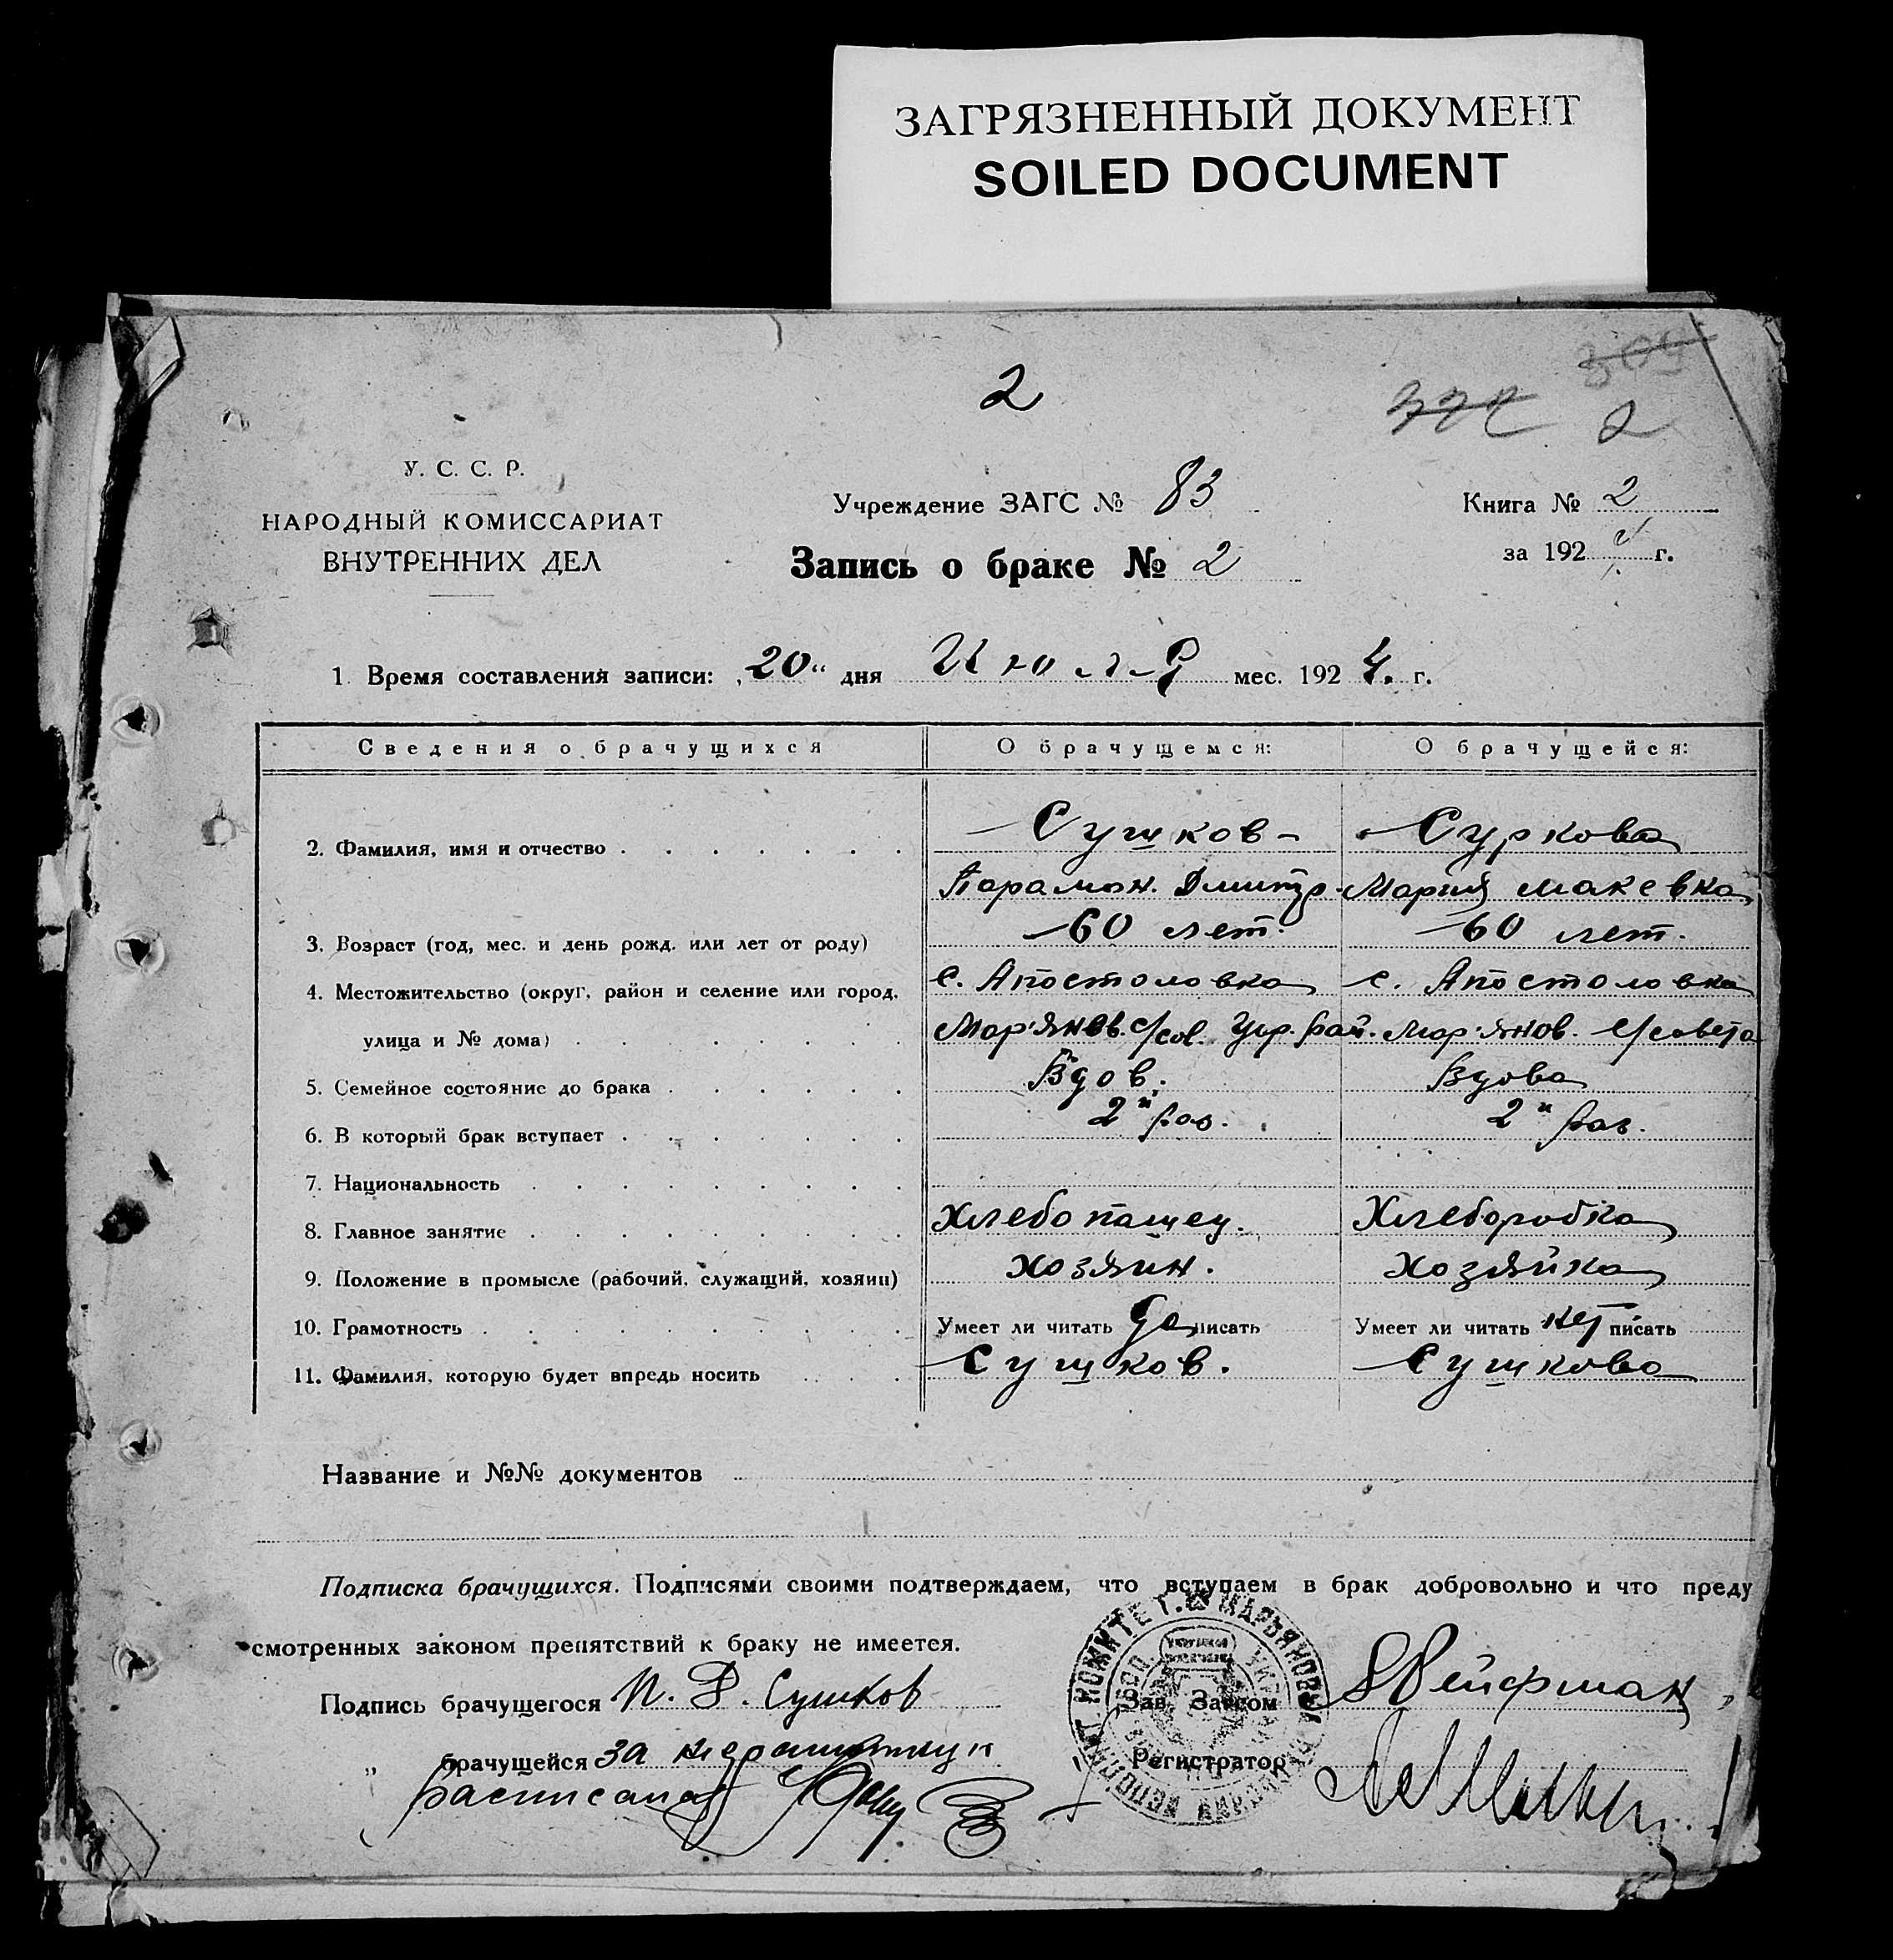 ЗАГРЯЗНЕННЫЙ ДОКУМЕНТ
SOILED DOCUMENT
309
2
2
У. С. С. Р.
НАРОДНЫЙ КОМИССАРИАТ
ВНУТРЕННИХ ДЕЛ
Учреждение ЗАГС № 83
Запись о браке № 2
Книга № 2
за 1924 г.
1. Время составления записи: „20“ дня Июля мес. 1924. г.
Сведения о брачущихся О брачущемся: О брачущейся:
2. Фамилия, имя и отчество Сушков Суркова
Парамон. Дмитр. Мария Макевна
3. Возраст (год, мес. и день рожд. или лет от роду) 60 лет. 60 лет.
4. Местожительство (округ, район и селение или город, с. Апостоловка с. Апостоловка
улица и № дома) Мар'янов. с/сов. рай. Мар'янов. с/совета
5. Семейное состояние до брака Вдов. Вдова
6. В который брак вступает 2й раз. 2й раз.
7. Национальность
8. Главное занятие Хлебопашец. Хлеборобка
9. Положение в промысле (рабочий, служащий, хозяин) Хозяин. Хозяйка
10. Грамотность Умеет ли читать да писать Умеет ли читать нет писать
11. Фамилия, которую будет впредь носить Сушков. Сушкова
Название и №№ документов
Подписка брачущихся. Подписями своими подтверждаем, что вступаем в брак добровольно и что преду
смотренных законом препятствий к браку не имеется.
Подпись брачущегося П. Д. Сушков Зав. Загсом
„ брачущейся за неграмотную Регистратор
расписался